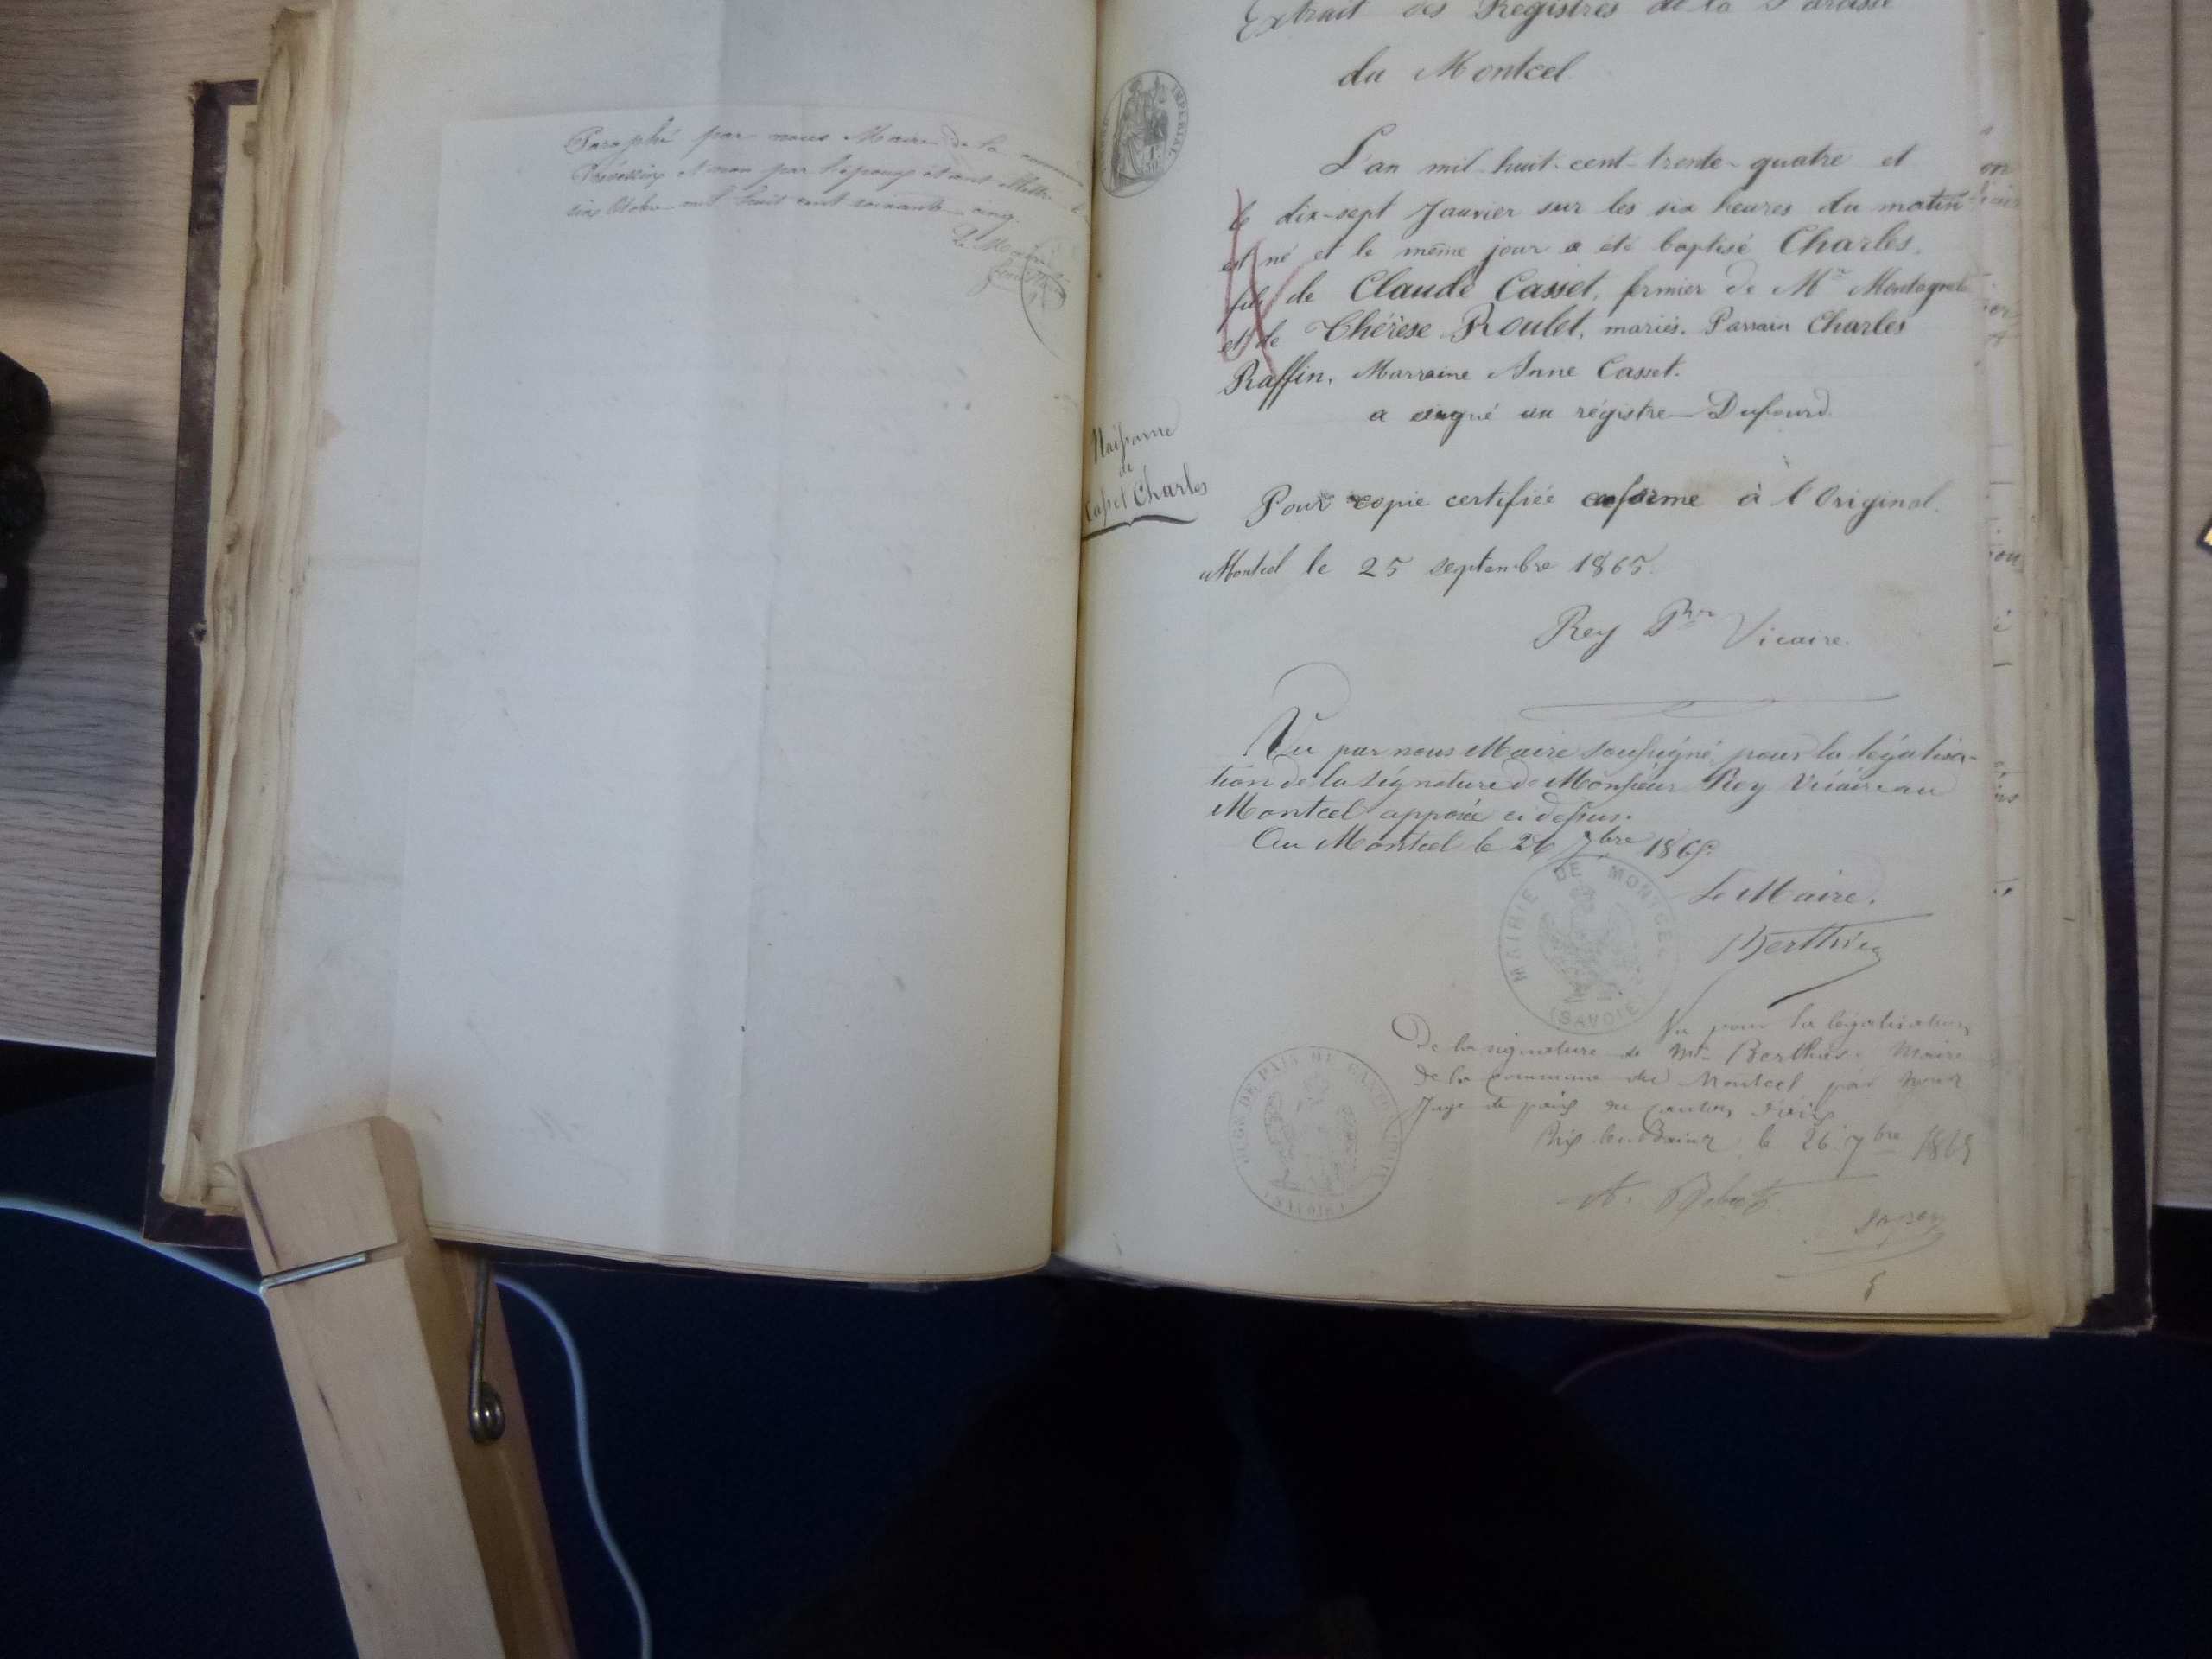 Paraphé par nous Maire de la
et non par l'époux étant illettré
six Octobre mil huit cent soixante-cinq.
Extrait des Registres de la Paroisse
du Montcel
IMPERIAL
L'an mil-huit-cent-trente-quatre et
le dix-sept Janvier sur les six heures du matin
est né et le même jour a été baptisé Charles,
fils de Claude Casset, fermier de Mr
et de Thérèse Roulet, mariés. Parrain Charles
Raffin, Marraine Anne Casset.
a signé au régistre - Dufourd.
Naissance
de
Casset Charles
Pour copie certifiée conforme à l'Original.
Montcel le 25 septembre 1865.
Rey Vicaire.
Vu par nous Maire soussigné, pour la légalisa-
tion de la signature de Monsieur Rey Vicaire au
Montcel apposée ci dessus.
Au Montcel le 26 7bre 1865.
MAIRIE DE MONTCEL
(SAVOIE)
Le Maire.
Berthier
Vu pour la légalisation
De la signature de Mr Berthier Maire
de la commune du Montcel par nous
Juge de paix du canton d'Aix
Aix-les-Bains, le 26 7bre 1865
JUGE DE PAIX DU CANTON